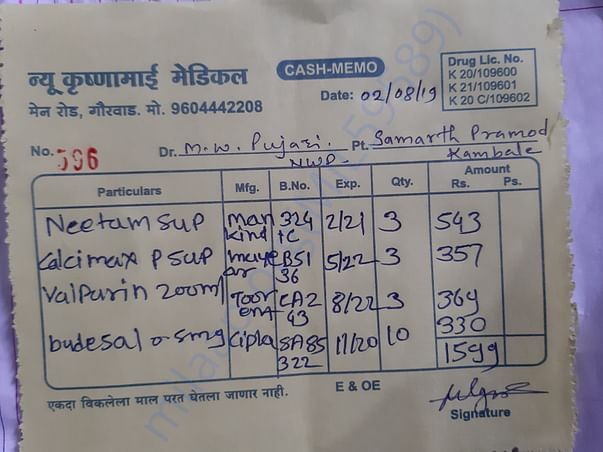 न्यू कृष्णामाई मेडिकल
मेन रोड, गौरवाड. मो. 9604442208
CASH-MEMO
Date: 02/08/19
Drug Lic. No.
K 20/109600
K 21/109601
K 20 C/109602
No. 596 Dr. M.W. Pujari. NWP- Pt. Samarth Pramod Kambale
Particulars Mfg. B.No. Exp. Qty. Amount Rs. Ps.
Neetam sup man kind 324 tc 2/21 3 543
Calcimax P sup B51 36 5/22 3 357
Valparin 200ml Toor ent CA2 43 8/22 3 369
budesal 0.5mg Cipla SA85 322 11/20 10 330
1599
एकदा विकलेला माल परत घेतला जाणार नाही. E & OE
Signature